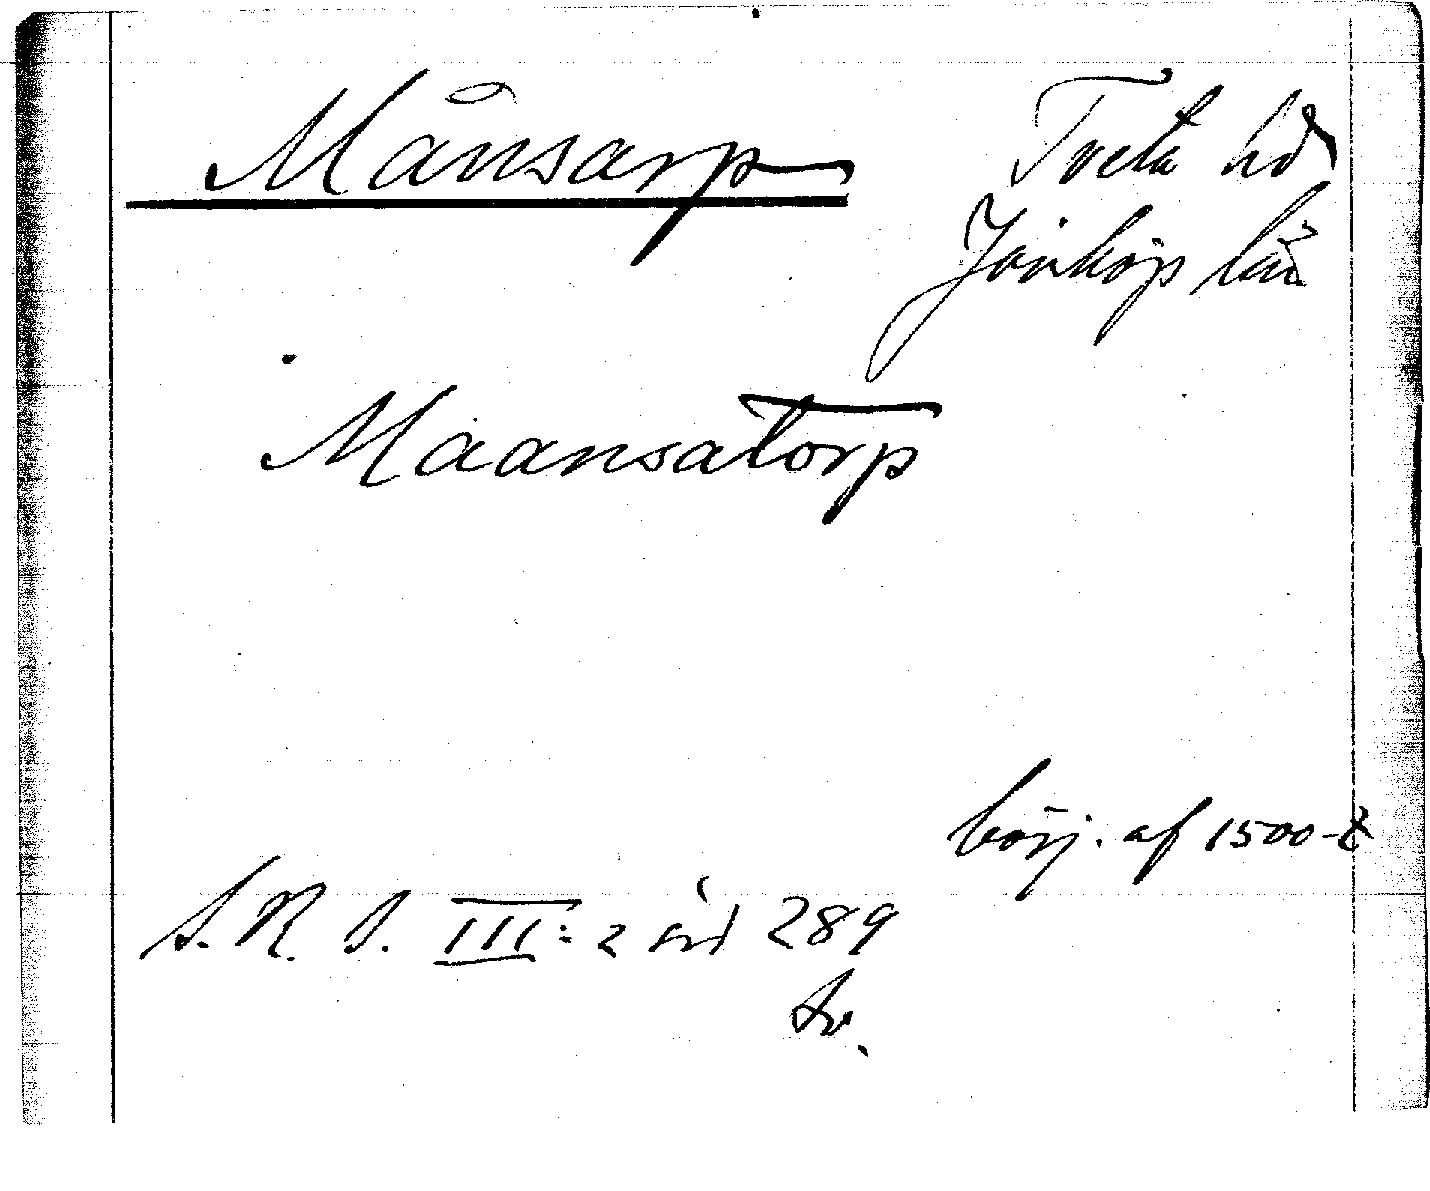 Månsarp
Tveta hd
Jönköp län
Maansatorp
börj. af 1500-t
S. R. S. III: 2 sid 289